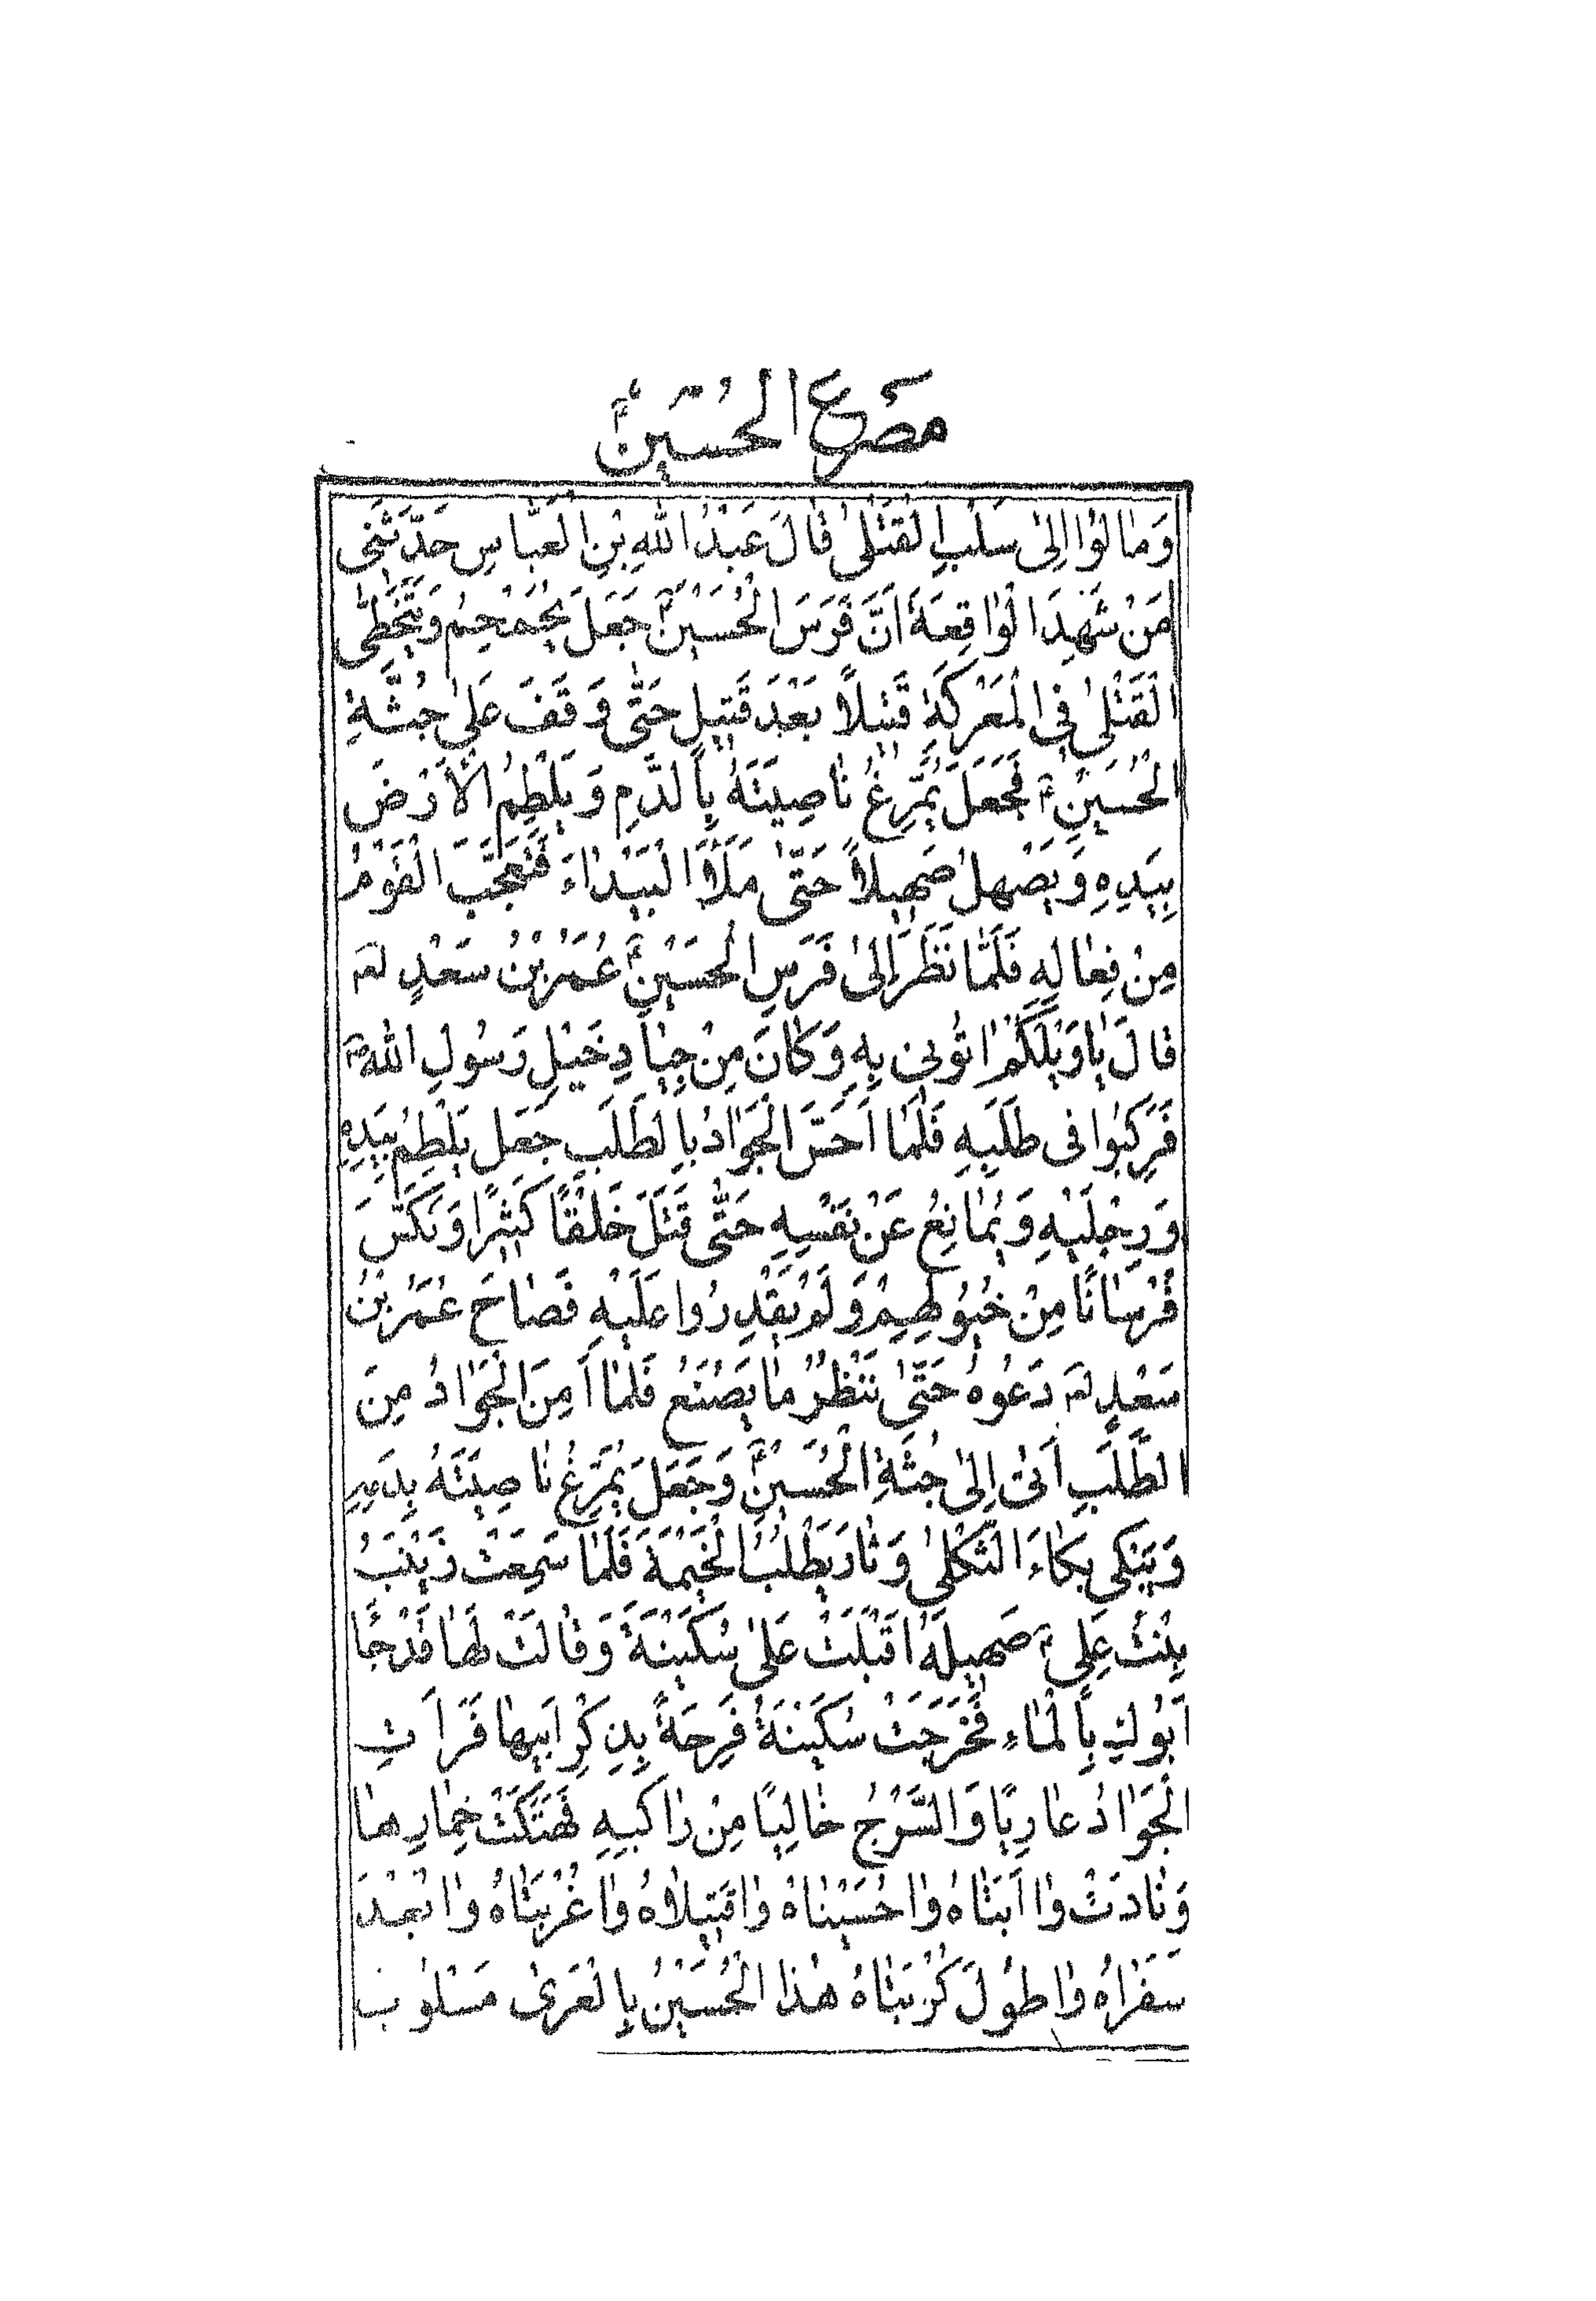 مَصْرَعُ الْحُسَيْنِ ع
وَمَالُوا اِلىٰ سَلْبِ الْقَتْلىٰ قَالَ عَبْدُ اللهِ بْنِ الْعَبَّاسِ حَدَّثَنِى
مَنْ شَهِدَ الْوَاقِعَةَ اَنَّ فَرَسَ الْحُسَيْنِ ع جَعَلَ يُحَمْحِمُ وَيَتَخَطّٰى
الْقَتْلىٰ فِى الْمَعْرِكَةِ قَتيلاً بَعْدَ قَتيلٍ حَتّٰى وَقَفَ عَلىٰ جُثَّةِ
الْحُسَيْنِ ع فَجَعَلَ يُمَرِّغُ نٰاصِيَتَهُ بِالدَّمِ وَيَلْطِمُ الْاَرْضَ
بِيَدِهِ وَيَصْهِلُ صَهيلاً حَتّٰى مَلَأَ الْبَيْدٰاءَ فَتَعَجَّبَ الْقَوْمُ
مِنْ فِعٰالِهِ فَلَمّٰا نَظَرَ اِلىٰ فَرَسِ الْحُسَيْنِ ع عُمَرُ بْنُ سَعْدٍ لعم
قٰالَ يٰا وَيْلَكُمْ اتُونى بِهِ وَكٰانَ مِنْ جِيٰادِ خَيْلِ رَسُولِ اللهِ ص
فَرَكِبُوا فى طَلَبِهِ فَلَمٰا اَحَسَّ الْجَوٰادُ بِالطَّلَبِ جَعَلَ يَلْطِمُ بِيَدِهِ
وَرِجْلَيْهِ وَيُمٰانِعُ عَنْ نَفْسِهِ حَتّٰى قَتَلَ خَلْقًا كَثيرًا وَنَكَسَ
فُرْسٰانًا مِنْ خُيُولِهِمْ وَلَمْ يَقْدِرُوا عَلَيْهِ فَصٰاحَ عُمَرُ بْنُ
سَعْدٍ لعم دَعُوهُ حَتّٰى نَنْظُرُ مٰا يَصْنَعُ فَلَمٰا اَمِنَ الْجَوٰادُ مِنَ
الطَّلَبِ اَتىٰ اِلىٰ جُثَّةِ الْحُسَيْنِ ع وَجَعَلَ يُمَرِّغُ نٰاصِيَتَهُ بِدَمِهِ
وَيَبْكى بُكٰاءَ الثَّكْلىٰ وَثٰارَ يَطْلُبُ الْخَيْمَةَ فَلَمٰا سَمِعَتْ زَيْنَبُ
بِنْتُ عَلِىٍّ ع صَهيلَهُ اَقْبَلَتْ عَلىٰ سُكَيْنَةَ وَقٰالَتْ لَهٰا قَدْ جٰآءَ
اَبُوكِ بِالْمٰاءِ فَخَرَجَتْ سُكَيْنَةُ فَرِحَةً بِذِكْرِ اَبيهٰا فَرَأَتِ
الْجَوٰادَ عٰارِيًا وَالسَّرْجُ خٰالِيًا مِنْ رٰاكِبِهِ فَهَتَكَتْ خِمٰارِهٰا
وَنٰادَتْ وٰا اَبَتٰاهُ وٰا حُسَيْنٰاهُ وٰا قَتيلاٰهُ وٰا غُرْبَتٰاهُ وٰا بُعْدَ
سَفَرٰاهُ وٰا طُولَ كُرْبَتٰاهُ هٰذَا الْحُسَيْنُ بِالْعَرىٰ مَسْلُوبَ